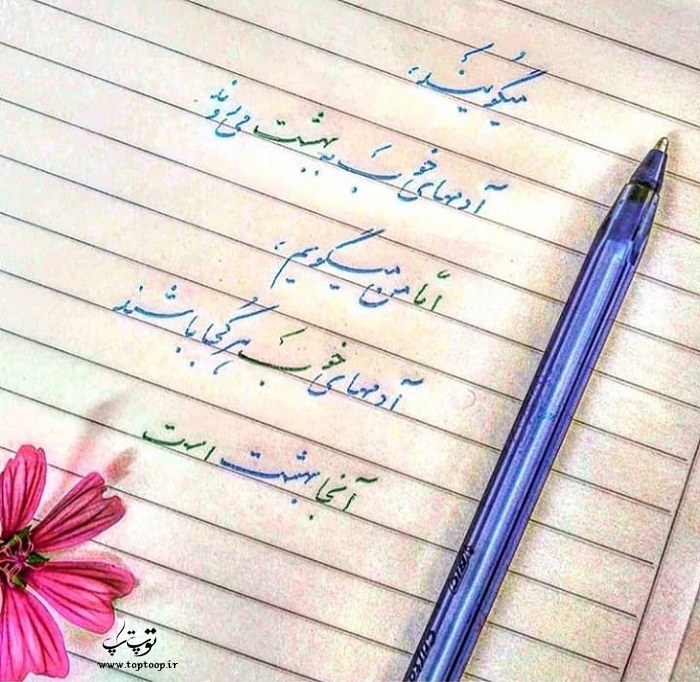 میگویند،
آدمهای خوب به بهشت می‌روند
امّا من میگویم،
آدمهای خوب هر کُجا باشند
آنجا بهشت است
BIC
توپ تاپ
www.toptoop.ir